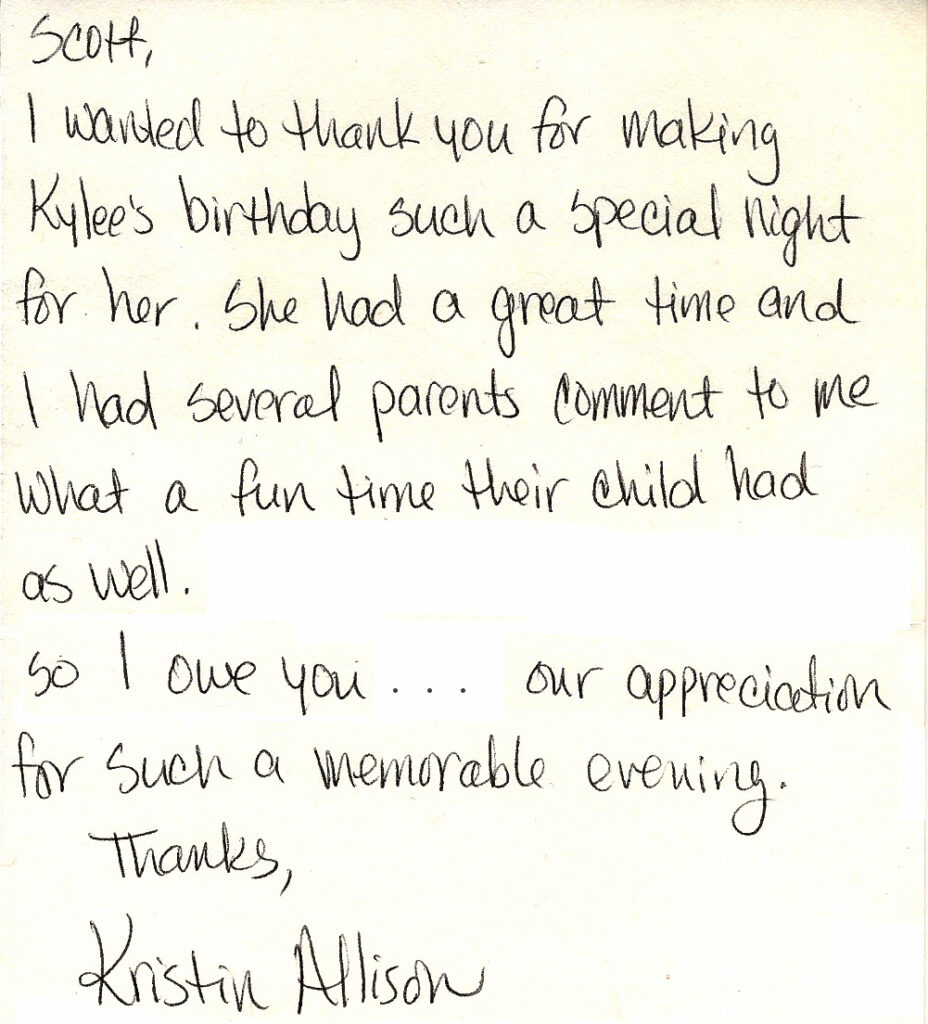 Scott,
I wanted to thank you for making
Kylee's birthday such a special night
for her. She had a great time and
I had several parents comment to me
what a fun time their child had
as well.
so I owe you ... our appreciation
for such a memorable evening.
Thanks,
Kristin Allison